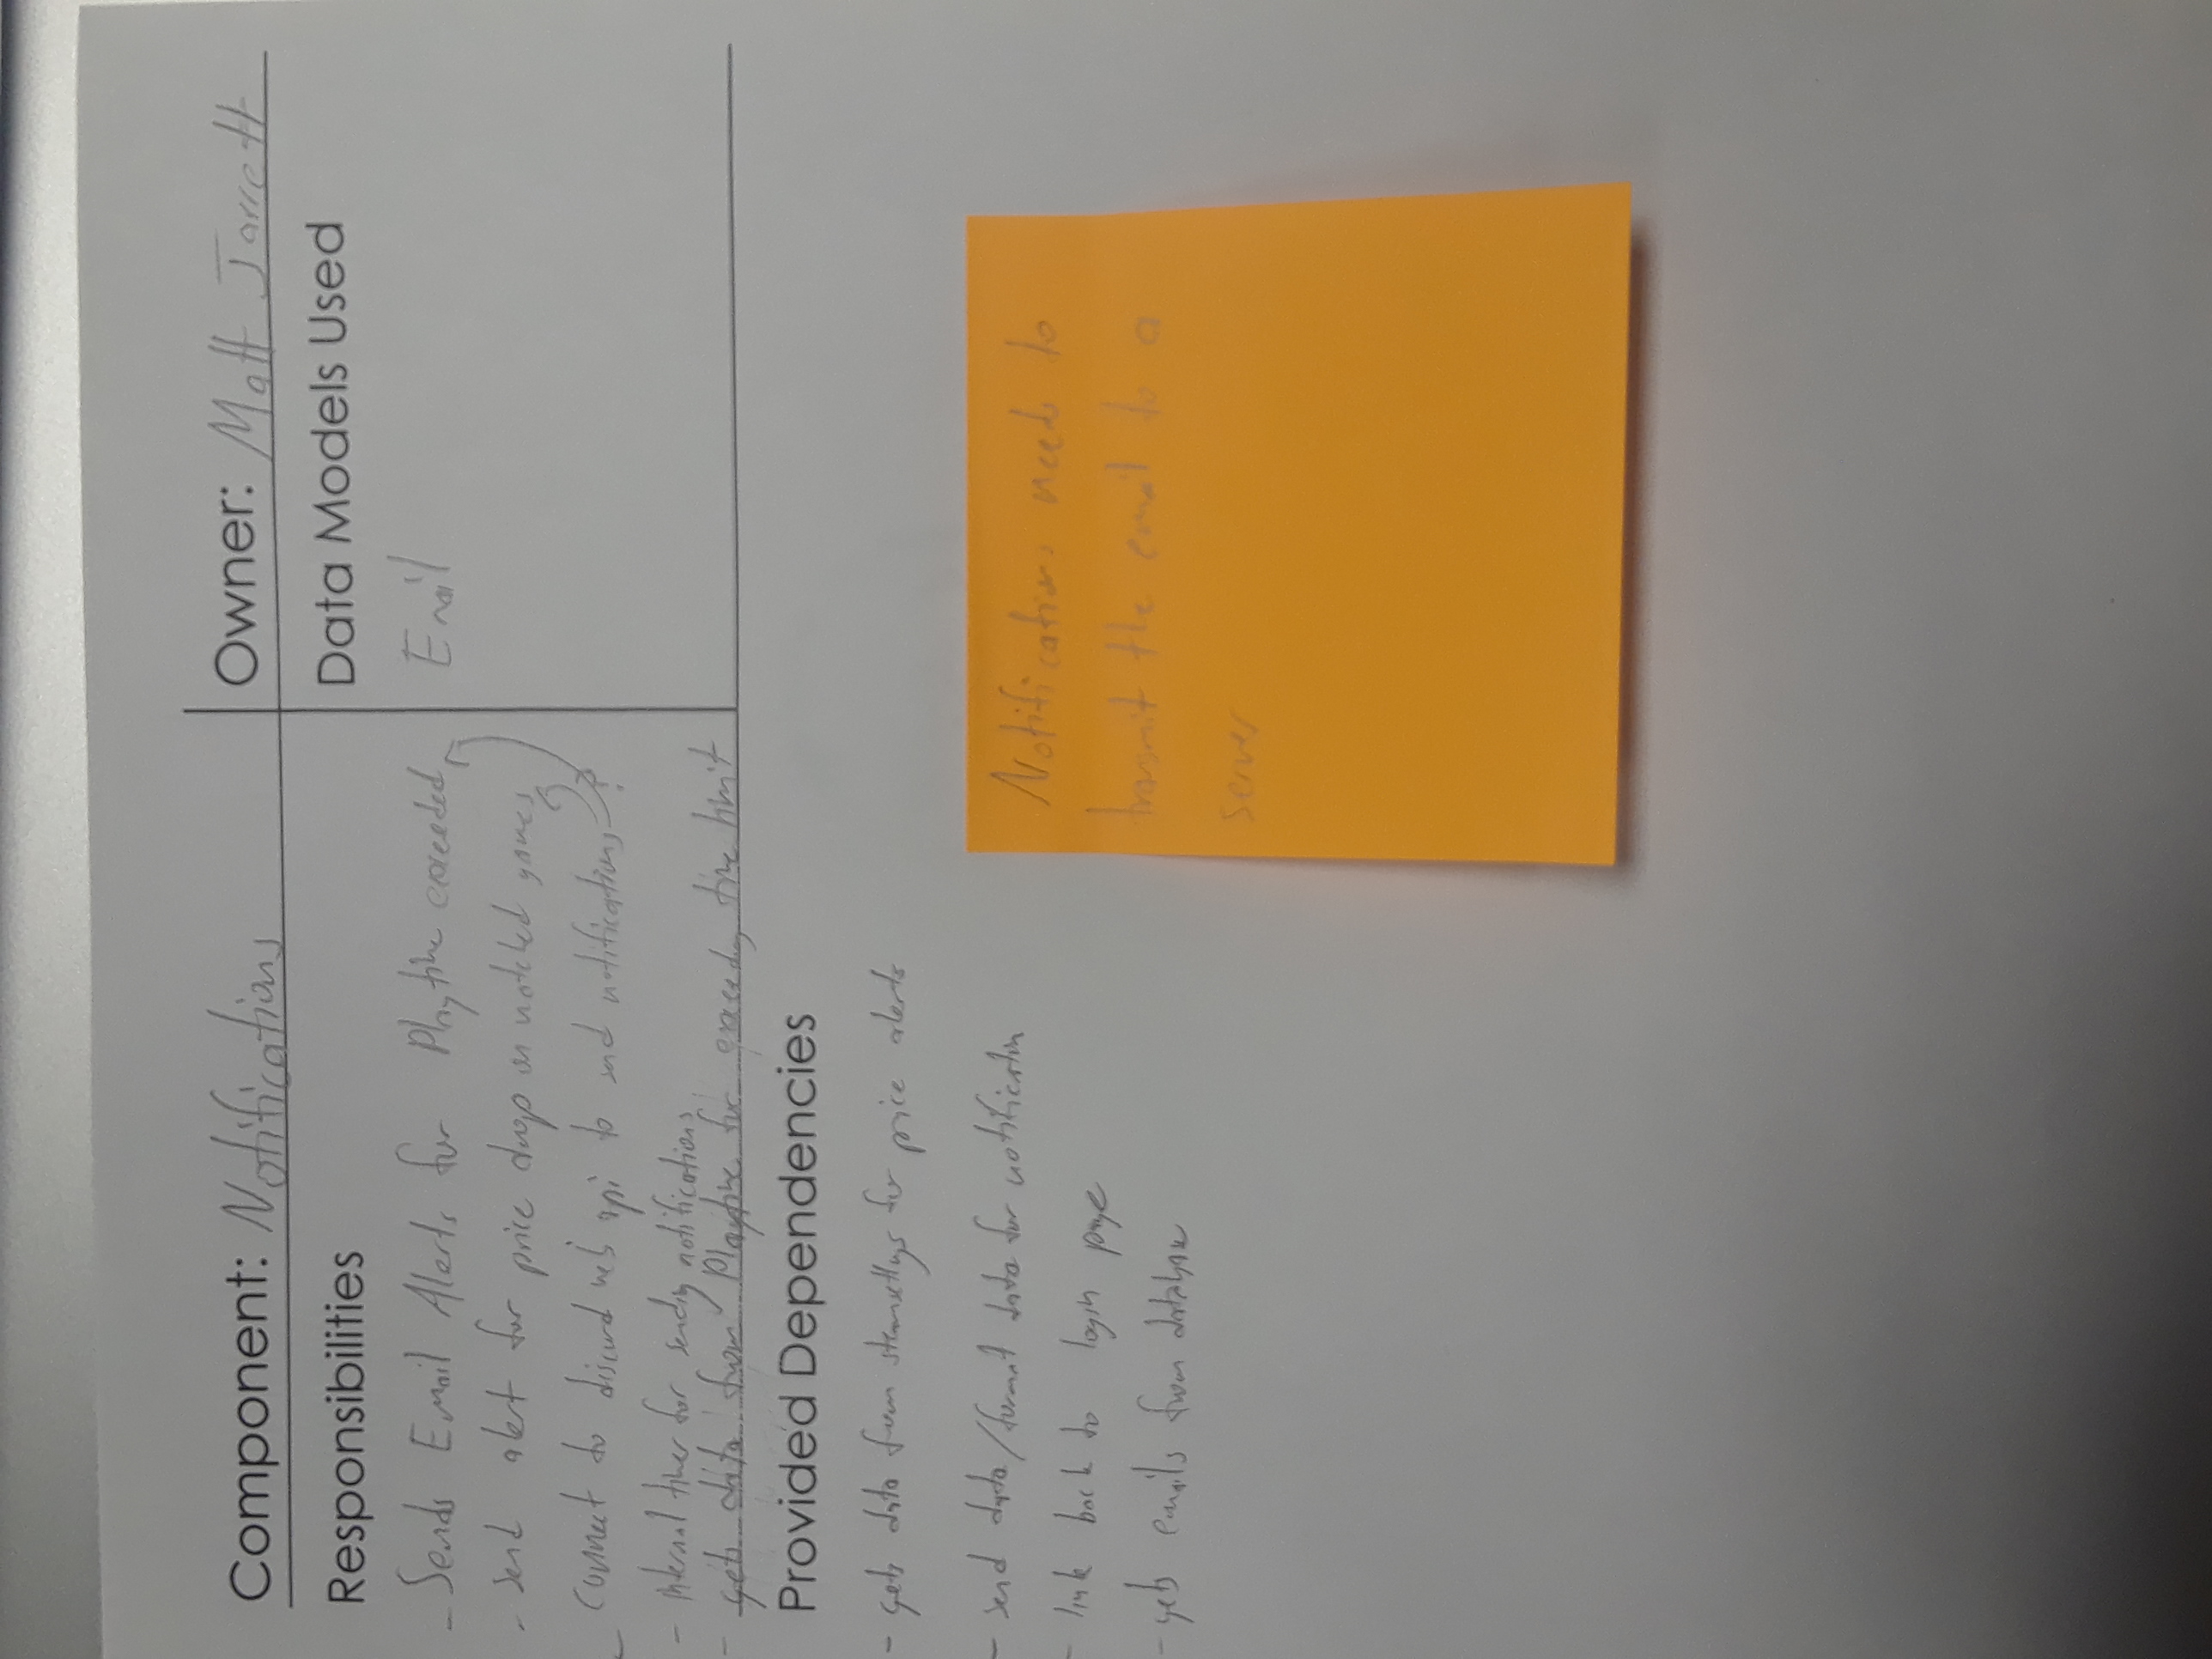 Component: Notifications
Owner: Matt Jarrett
Responsibilities
- Sends Email Alerts for Playtime exceeded
- send alert for price drop on watched games
- connect to discord web api to send notifications ?
- internal timer for sending notifications
- gets data from Playtime for exceeding time limit
Data Models Used
Email
Provided Dependencies
- gets data from steamsettings for price alerts
- send data/format data for notification
- link back to login page
- gets emails from database
Notifications needs to
transmit the email to a
server